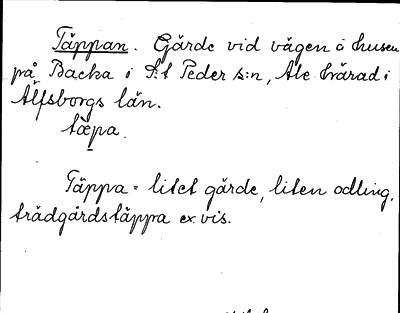 Täppan. Gärde vid vägen å husen
på Backa i S:t Peder s:n, Ale härad i
Älfsborgs län.
tæpa.
Täppa = litet gärde, liten odling,
trädgårdstäppa ex. vis.